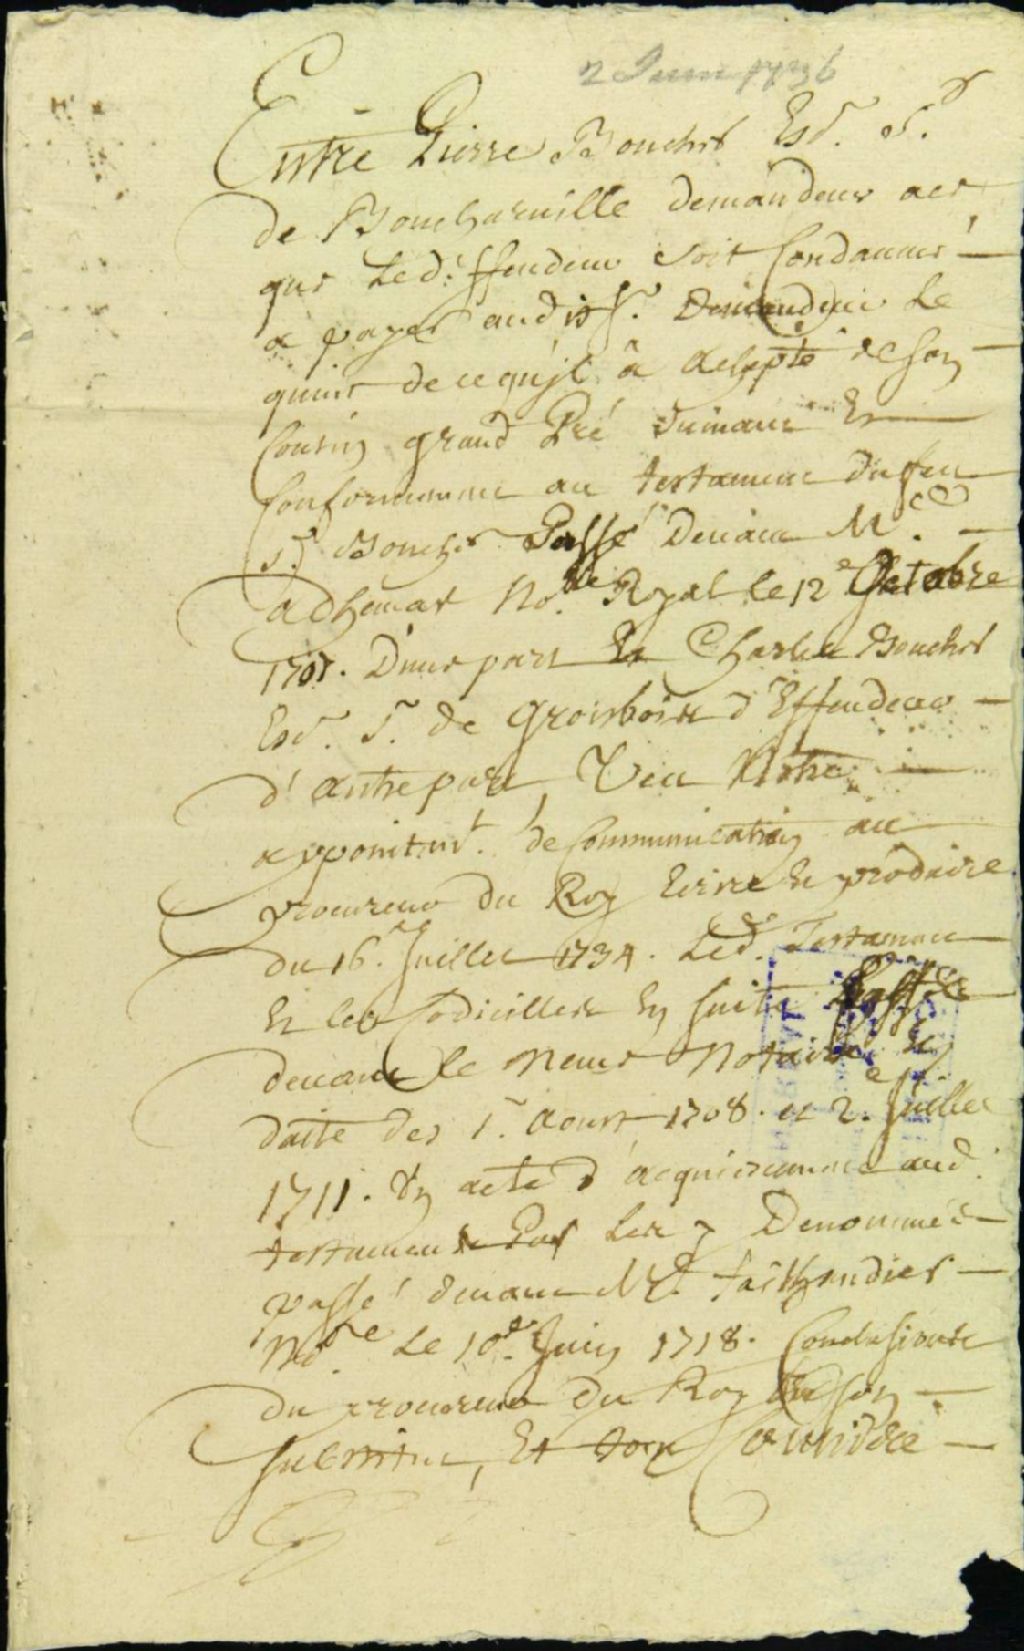 2 Juin 1736
Entre Pierre Boucher Esc.r S.r
de Boucherville demandeur a ce
que Led. deffendeur soit Condamné
a payer aud. S.r Demandeur Le
quint de ce qu'jl a de son
Cousin grand Pré suivant Et
Conformement au testament du feu
S.r Boucher Passé Devant M.e
adhemar No.re Royal le 12.e Octobre
1707. D'une part Et Charles Boucher
Esc.r S.r de Grosbois d'Effendeur
d'autre part, Veu Notre
appointm.t de Communication au
procureur du Roy Ecrire Et produire
du 16.e Juillet 1734. Led. Testament
Et les Codicilles En suite Passés
devant le meme Notaire En
datte des 1.r Aoust 1708. et 2.e Juillet
1711. Un acte d'acquiescement aud.
testament Par Les y Denommés
passé devant M.e Tailhandier
No.re Le 10.e Juin 1718. Conclusions
du procureur du Roy ou son
substitut, Et tout Considéré